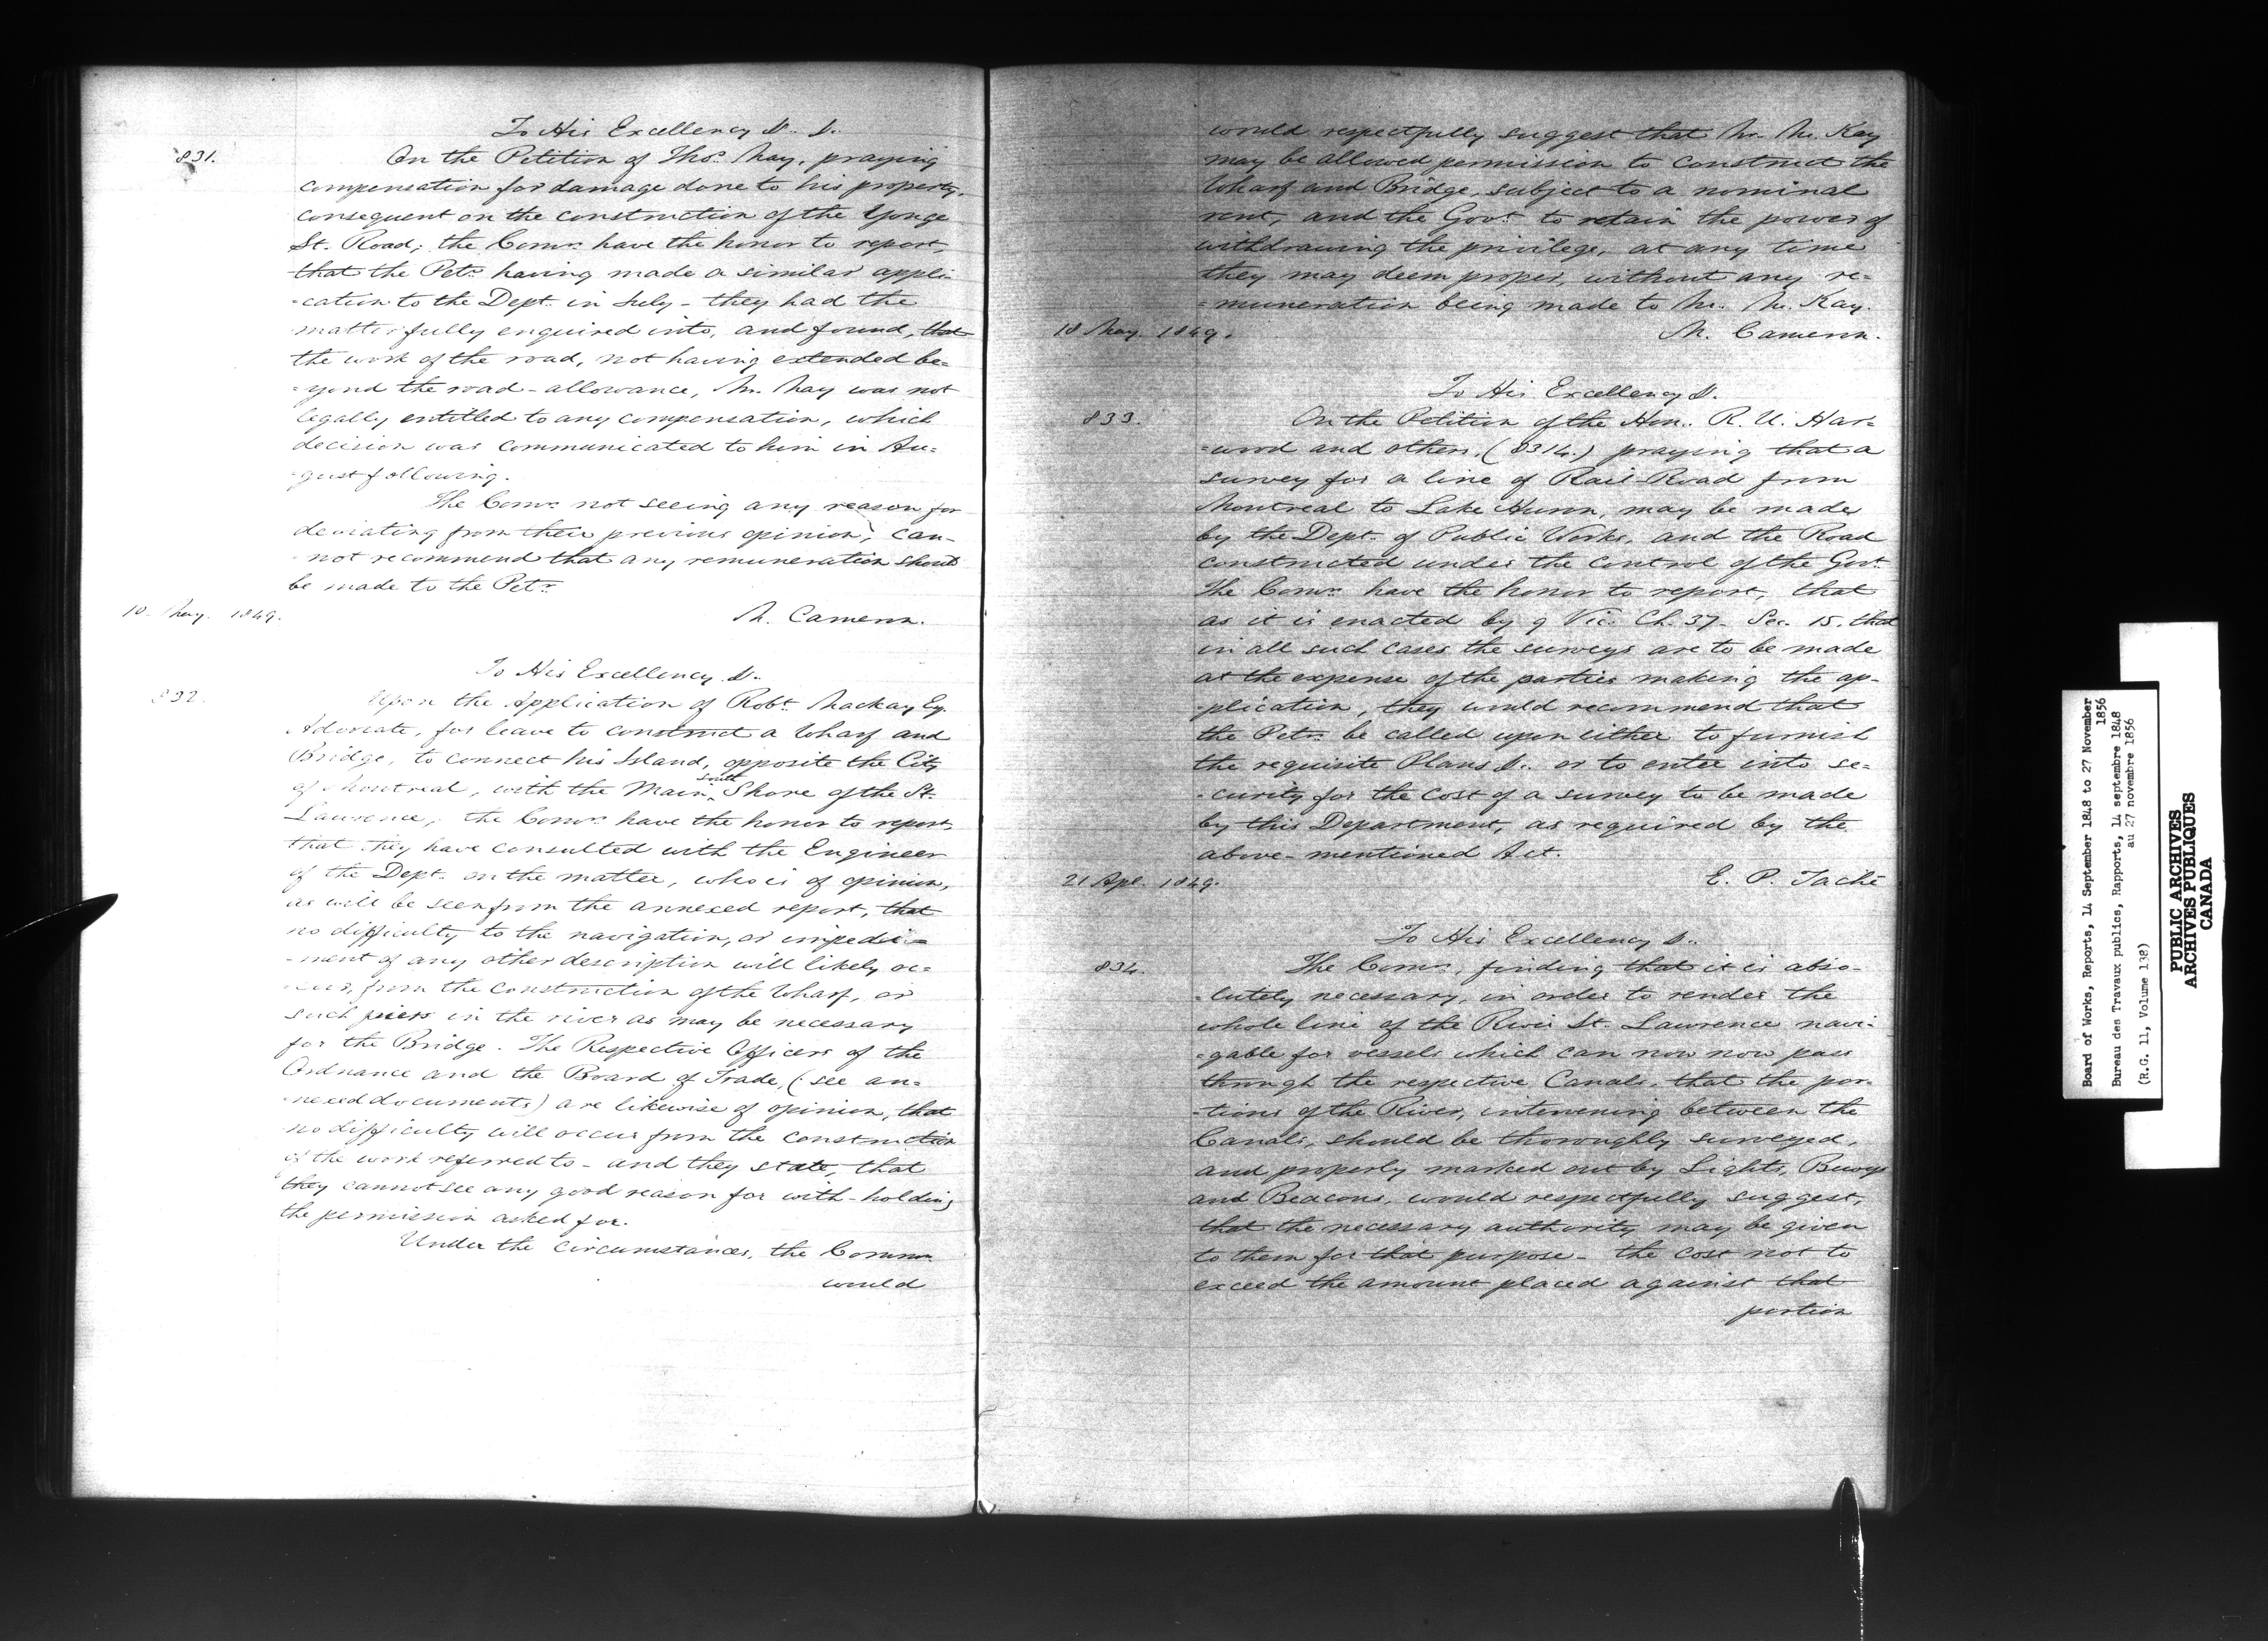 To His Excellency &. &.
831.
On the Petition of Thos. May, praying
compensation for damage done to his property,
consequent on the construction of the Yonge
St. Road; the Comrs. have the honor to report,
that the Petr. having made a similar appli-
-cation to the Dept. in July - they had the
matter fully enquired into, and found, that
the work of the road, not having extended be=
=yond the road-allowance, Mr. May was not
legally entitled to any compensation, which
decision was communicated to him in Au=
=gust following.
The Comrs. not seeing any reason for
deviating from their previous opinion, can-
-not recommend that any remuneration should
be made to the Petr.
10 May. 1849.
M. Cameron.
To His Excellency &.
832.
Upon the Application of Robt. Mackay Esq.
Advocate, for leave to construct a Wharf and
Bridge, to connect his Island, opposite the City
of Montreal, with the Main south Shore of the St.
Lawrence; the Comrs. have the honor to report,
that they have consulted with the Engineer
of the Dept. on the matter, who is of opinion,
as will be seen from the annexed report, that
no difficulty to the navigation, or impedi=
-ment of any other description will likely oc=
-cur, from the construction of the Wharf, or
such piers in the river as may be necessary
for the Bridge. The Respective Officers of the
Ordnance and the Board of Trade, (see an=
-nexed documents) are likewise of opinion, that
no difficulty will occur from the construction
of the work referred to - and they state, that
they cannot see any good reason for with-holding
the permission asked for.
Under the circumstances, the Comrs.
would
would respectfully suggest that Mr. McKay
may be allowed permission to construct the
Wharf and Bridge, subject to a nominal
rent, and the Govt. to retain the power of
withdrawing the privilege, at any time
they may deem proper, without any re=
=muneration being made to Mr. McKay.
10 May. 1849.
M. Cameron.
To His Excellency &.
833.
On the Petition of the Hon. R. U. Har=
=wood and others, (8314.) praying that a
survey for a line of Rail-Road from
Montreal to Lake Huron, may be made
by the Dept. of Public Works, and the Road
constructed under the control of the Govt.
The Comrs. have the honor to report, that
as it is enacted by 9 Vic. Ch. 37 - Sec. 15. that
in all such cases the surveys are to be made
at the expense of the parties making the ap-
-plication, they would recommend that
the Petrs. be called upon either to furnish
the requisite Plans &. or to enter into se=
-curity for the cost of a survey to be made
by this Department, as required by the
above-mentioned Act.
21 Apl. 1849.
E. P. Taché
To His Excellency &.
834.
The Comrs., finding that it is abso-
-lutely necessary, in order to render the
whole line of the River St. Lawrence navi=
=gable for vessels which can now now pass
through the respective Canals, that the por-
-tions of the River, intervening between the
Canals, should be thoroughly surveyed,
and properly marked out by Lights, Buoys
and Beacons, would respectfully suggest,
that the necessary authority may be given
to them for that purpose - the cost not to
exceed the amount placed against that
portion
Board of Works, Reports, 14 September 1848 to 27 November
1856
Bureau des Travaux publics, Rapports, 14 septembre 1848
au 27 novembre 1856
(R.G. 11, Volume 138)
PUBLIC ARCHIVES
ARCHIVES PUBLIQUES
CANADA